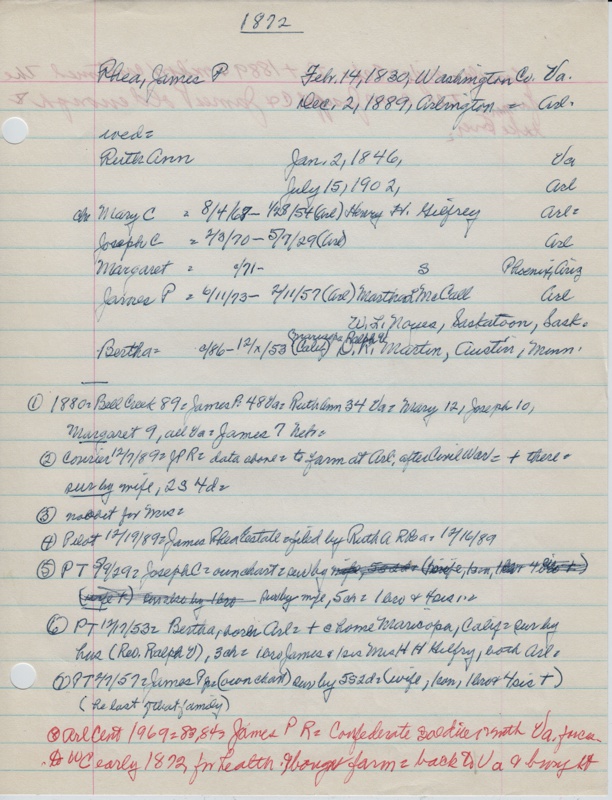 1872
Rhea, James P Feb. 14, 1830, Washington Co. Va.
Dec. 2, 1889, Arlington = Arl.
wed=
Ruth Ann Jan. 2, 1846, Va
July 15, 1902, Arl
ch= Mary C = 8/4/68- 1/28/54 (Arl) Henry H. Gilfrey Arl=
Joseph C = 2/3/70 - 5/7/29 (Arl) Arl
Margaret = 0/71- S Phoenix, Ariz
James P = 6/11/73- 2/11/57 (Arl) Martha L McCall Arl
W. L. Noyes, Saskatoon, Sask.
Maricopa Ralph Y
Bertha= 0/86-12/x/53 (Calif) D. R. Martin, Austin, Minn.
① 1880= Bell Creek 89= James P. 48 Va= Ruth Ann 34 Va= Mary 12, Joseph 10,
Margaret 9, all Va= James 7 Neb=
② Courier 12/7/89= JPR= data above= to farm at Arl. after Civil War= + there=
sur by wife, 2s 4d=
③ no obit for Mrs=
④ Pilot 12/19/89= James Rhea estate filed by Ruth A Rhea= 12/16/89
⑤ PT 5/9/29= Joseph C= own chart= sur by
sur by wife, 5ch= 1 bro & 4 sis
⑥ PT 12/17/53= Bertha, born Arl= + @ home Maricopa, Calif= sur by
hus (Rev. Ralph Y), 3ch= 1 bro James & 1 sis Mrs H H Gilfry, both Arl.
⑦ PT 2/7/57= James P= (own chart) sur by 5s 2d= (wife, 1 son, 1 bro & 4 sis +)
(he last of that family)
⑧ Arl Cent 1969= 83, 84= James P R= Confederate soldier with Va.
to WC early 1872 for health & bought farm= back to Va & bring